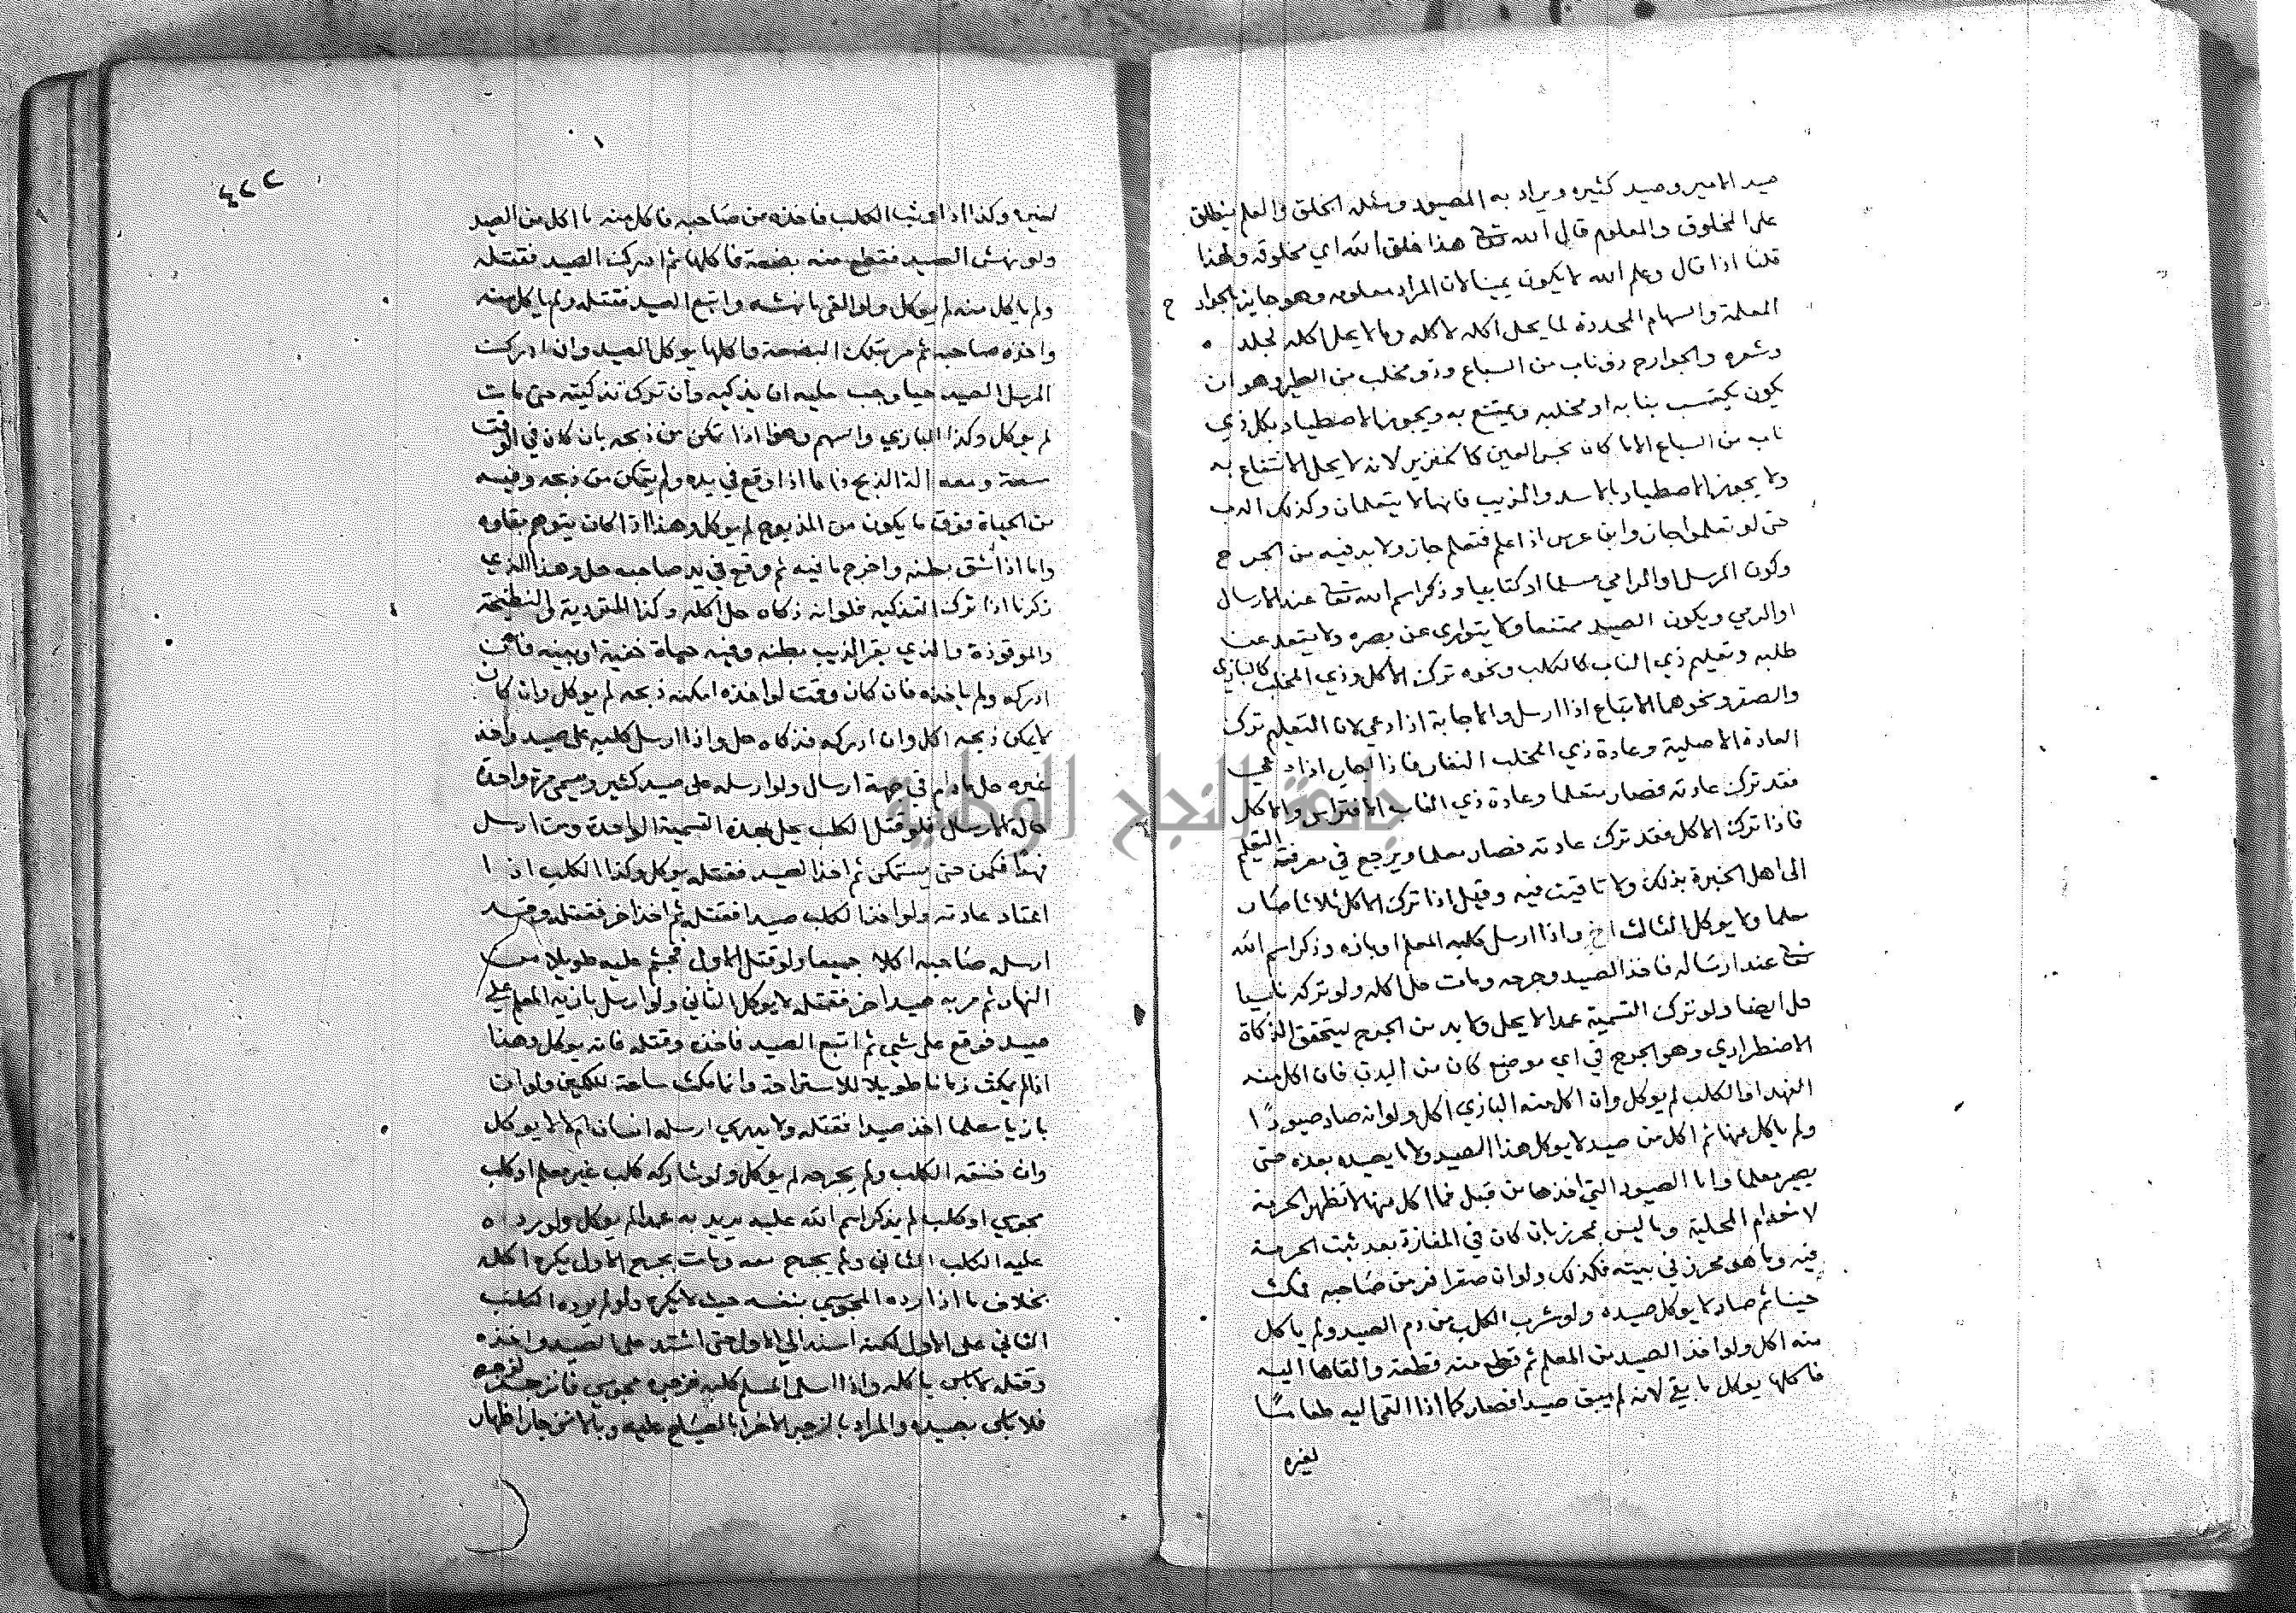 صيد الامير وصيد كثيره ويراد به المصيود ومثله الخلق والعلم ينطلق
على المخلوق والمعلوم قال الله تع هذا خلق الله اي مخلوقه ولهذا
قلنا اذا قال وعلم الله لا يكون يمينا لان المراد معلومه وهو جايز بالجوارح
المعلمة والسهام المحددة لما يحل اكله لاكله وما لا يحل اكله لجلده
وشعره والجوارح ذو ناب من السباع وذو مخلب من الطير وهو ان
يكون يكتسب بنابه او مخلبه ويمتنع به ويجوز الاصطياد بكل ذي
ناب من السباع الا ما كان نجس العين كالخنزير لانه لا يحل الانتفاع به
ولا يجوز الاصطياد بالاسد والذيب فانهما لا يتعلمان وكذلك الدب
حتى لو تعلموا جاز وابن عرس اذا علم فتعلم جاز ولا بد فيه من الجرح
وكون المرسل والرامي مسلما او كتابيا وذكر اسم الله تع عند الارسال
او الرمي ويكون الصيد ممتنعا ولا يتوارى عن بصره ولا يقعد عن
طلبه وتعليم ذي الناب كالكلب ونحوه ترك الاكل وذي المخلب كالبازي
والصقر ونحوهما الاتباع اذا ارسل والاجابة اذا دعي لان التعليم ترك
العادة الاصلية وعادة ذي المخلب النفار فاذا اجاب اذا دعي
فقد ترك عادته فصار معلما وعادة ذي الناب الافتراس والاكل
فاذا ترك الاكل فقد ترك عادته فصار معلما ويرجع في معرفة التعليم
الى اهل الخبرة بذلك ولا تاقيت فيه وقيل اذا ترك الاكل ثلاثا صار
معلما ولا يوكل الثالث اخ واذا ارسل كلبه المعلم او بازه وذكر اسم الله
تع عند ارساله فاخذ الصيد وجرحه ومات حل اكله ولو تركه ناسيا
حل ايضا ولو ترك التسمية عمدا لا يحل ولا بد من الجرح ليتحقق الذكاة
الاضطراري وهو الجرح في اي موضع كان من البدن فان اكل منه
الفهد او الكلب لم يوكل وان اكل منه البازي اكل ولو انه صاد صيودًا
ولم ياكل منها ثم اكل من صيد لا يوكل هذا الصيد ولا ما يصيده بعده حتى
يصير معلما واما الصيود التي اخذها من قبل فما اكل منها لا تظهر الحرمة
لانعدام المحلية وما ليس بمحرز بان كان في المفازة بعد ثبت الحرمة
فيه وما هو محرز في بيته فكذلك ولو ان صقرا فر من صاحبه فمكث
حينا ثم صاد لا يوكل صيده ولو شرب الكلب من دم الصيد ولم ياكل
منه اكل ولو اخذ الصيد من المعلم ثم قطع منه قطعة والقاها اليه
فاكلها يوكل ما بقي لانه لم يبق صيدا فصار كما اذا القى اليه طعامًا
لغيره
٤٢٢
لغيره وكذا اذا وثب الكلب فاخذه من صاحبه فاكل منه ما اكل من الصيد
ولو نهش الصيد فقطع منه بضعة فاكلها ثم ادرك الصيد فقتله
ولم ياكل منه لم يوكل ولو القى ما نهشه واتبع الصيد فقتله ولم ياكل منه
واخذه صاحبه ثم مر بتلك البضعة فاكلها يوكل الصيد وان ادرك
المرسل الصيد حيا وجب عليه ان يذكيه وان ترك تذكيته حتى مات
لم يوكل وكذا البازي والسهم وهذا اذا تمكن من ذبحه بان كان في الوقت
سعة ومعه الة الذبح واما اذا وقع في يده ولم يتمكن من ذبحه وفيه
من الحياة فوق ما يكون من المذبوح لم يوكل وهذا اذا كان يتوهم بقاوه
واما اذا شق بطنه واخرج ما فيه ثم وقع في يد صاحبه حل وهذا الذي
ذكرنا اذا ترك التذكية فلو انه ذكاه حل اكله وكذا المتردية والنطيحة
والموقوذة والذي بقر الذيب بطنه وفيه حياة خفية او بينة فان
ادركه ولم ياخذه فان كان وقت لو اخذه امكنه ذبحه لم يوكل وان كان
لا يمكن ذبحه اكل وان ادركه فذكاه حل واذا ارسل كلبه على صيد واخذ
غيره حل ما دام في جهة ارسال ولو ارسله على صيد كثير وسمى مرة واحدة
حالة الارسال فلو قتل الكلب يحل بهذه التسمية الواحدة ومن ارسل
فهدًا فكمن حتى يستمكن ثم اخذ الصيد فقتله يوكل وكذا الكلب اذا
اعتاد عادته ولو اخذ الكلب صيدا فقتله ثم اخذ اخر فقتله وقد
ارسله صاحبه اكلا جميعا ولو قتل الاول فجثم عليه طويلا من
النهار ثم مر به صيد اخر فقتله لا يوكل الثاني ولو ارسل بازيه المعلم على
صيد فوقع على شي ثم اتبع الصيد فاخذه وقتله فانه يوكل وهذا
اذا لم يمكث زمانا طويلا للاستراحة وانما مكث ساعة للكمين ولو ان
بازيا معلما اخذ صيدا فقتله ولا يدري ارسله انسان ام لا لا يوكل
وان خنقه الكلب ولم يجرحه لم يوكل ولو شاركه كلب غير معلم او كلب
مجوسي او كلب لم يذكر اسم الله عليه يريد به عمدا لم يوكل ولو رده
عليه الكلب الثاني ولم يجرح معه ومات بجرح الاول يكره اكله
بخلاف ما اذا رده المجوسي بنفسه حيث لا يكره ولو لم يرده الكلب
الثاني على الاول لكنه اشتد على الاول حتى اشتد على الصيد واخذه
وقتله لا باس باكله واذا ارسل المسلم كلبه فزجره مجوسي فانزجر لزجره
فلا باس بصيده والمراد بالزجر الاغرا بالصياح عليه وبالانزجار اظهار